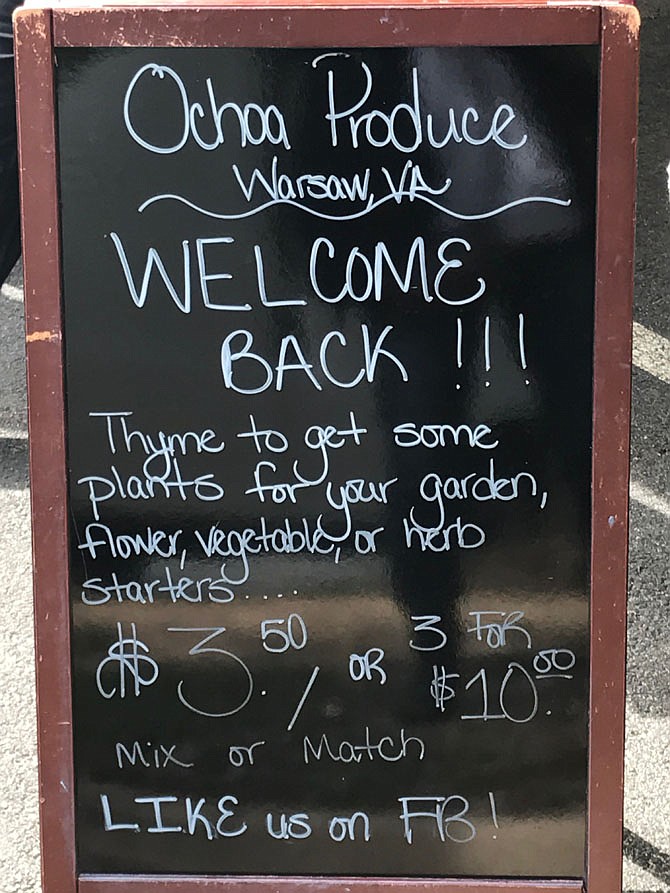 Ochoa Produce
Warsaw, VA
WELCOME
BACK !!!
Thyme to get some
plants for your garden,
flower, vegetable, or herb
starters....
$3.50/ OR 3 FOR $10.00
Mix or Match
LIKE us on FB!